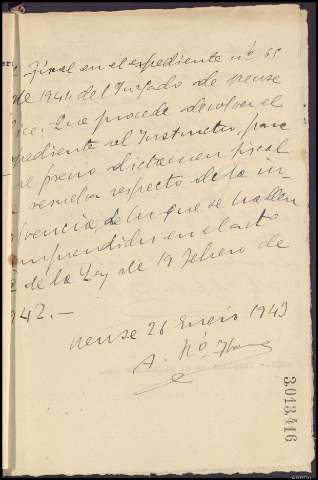 Fiscal en el expediente nº 65
de 1941 del Juzgado de Orense
dice: Que procede devolver el
pediente al Instructor, para
previo dictamen fiscal
resuelva respecto de la in
solvencia, de los que se hallen
mprendidos en el acto
de la Ley de 19 Febrero de
942.—
Orense 26 Enero 1943
A. Nº
3.013.416